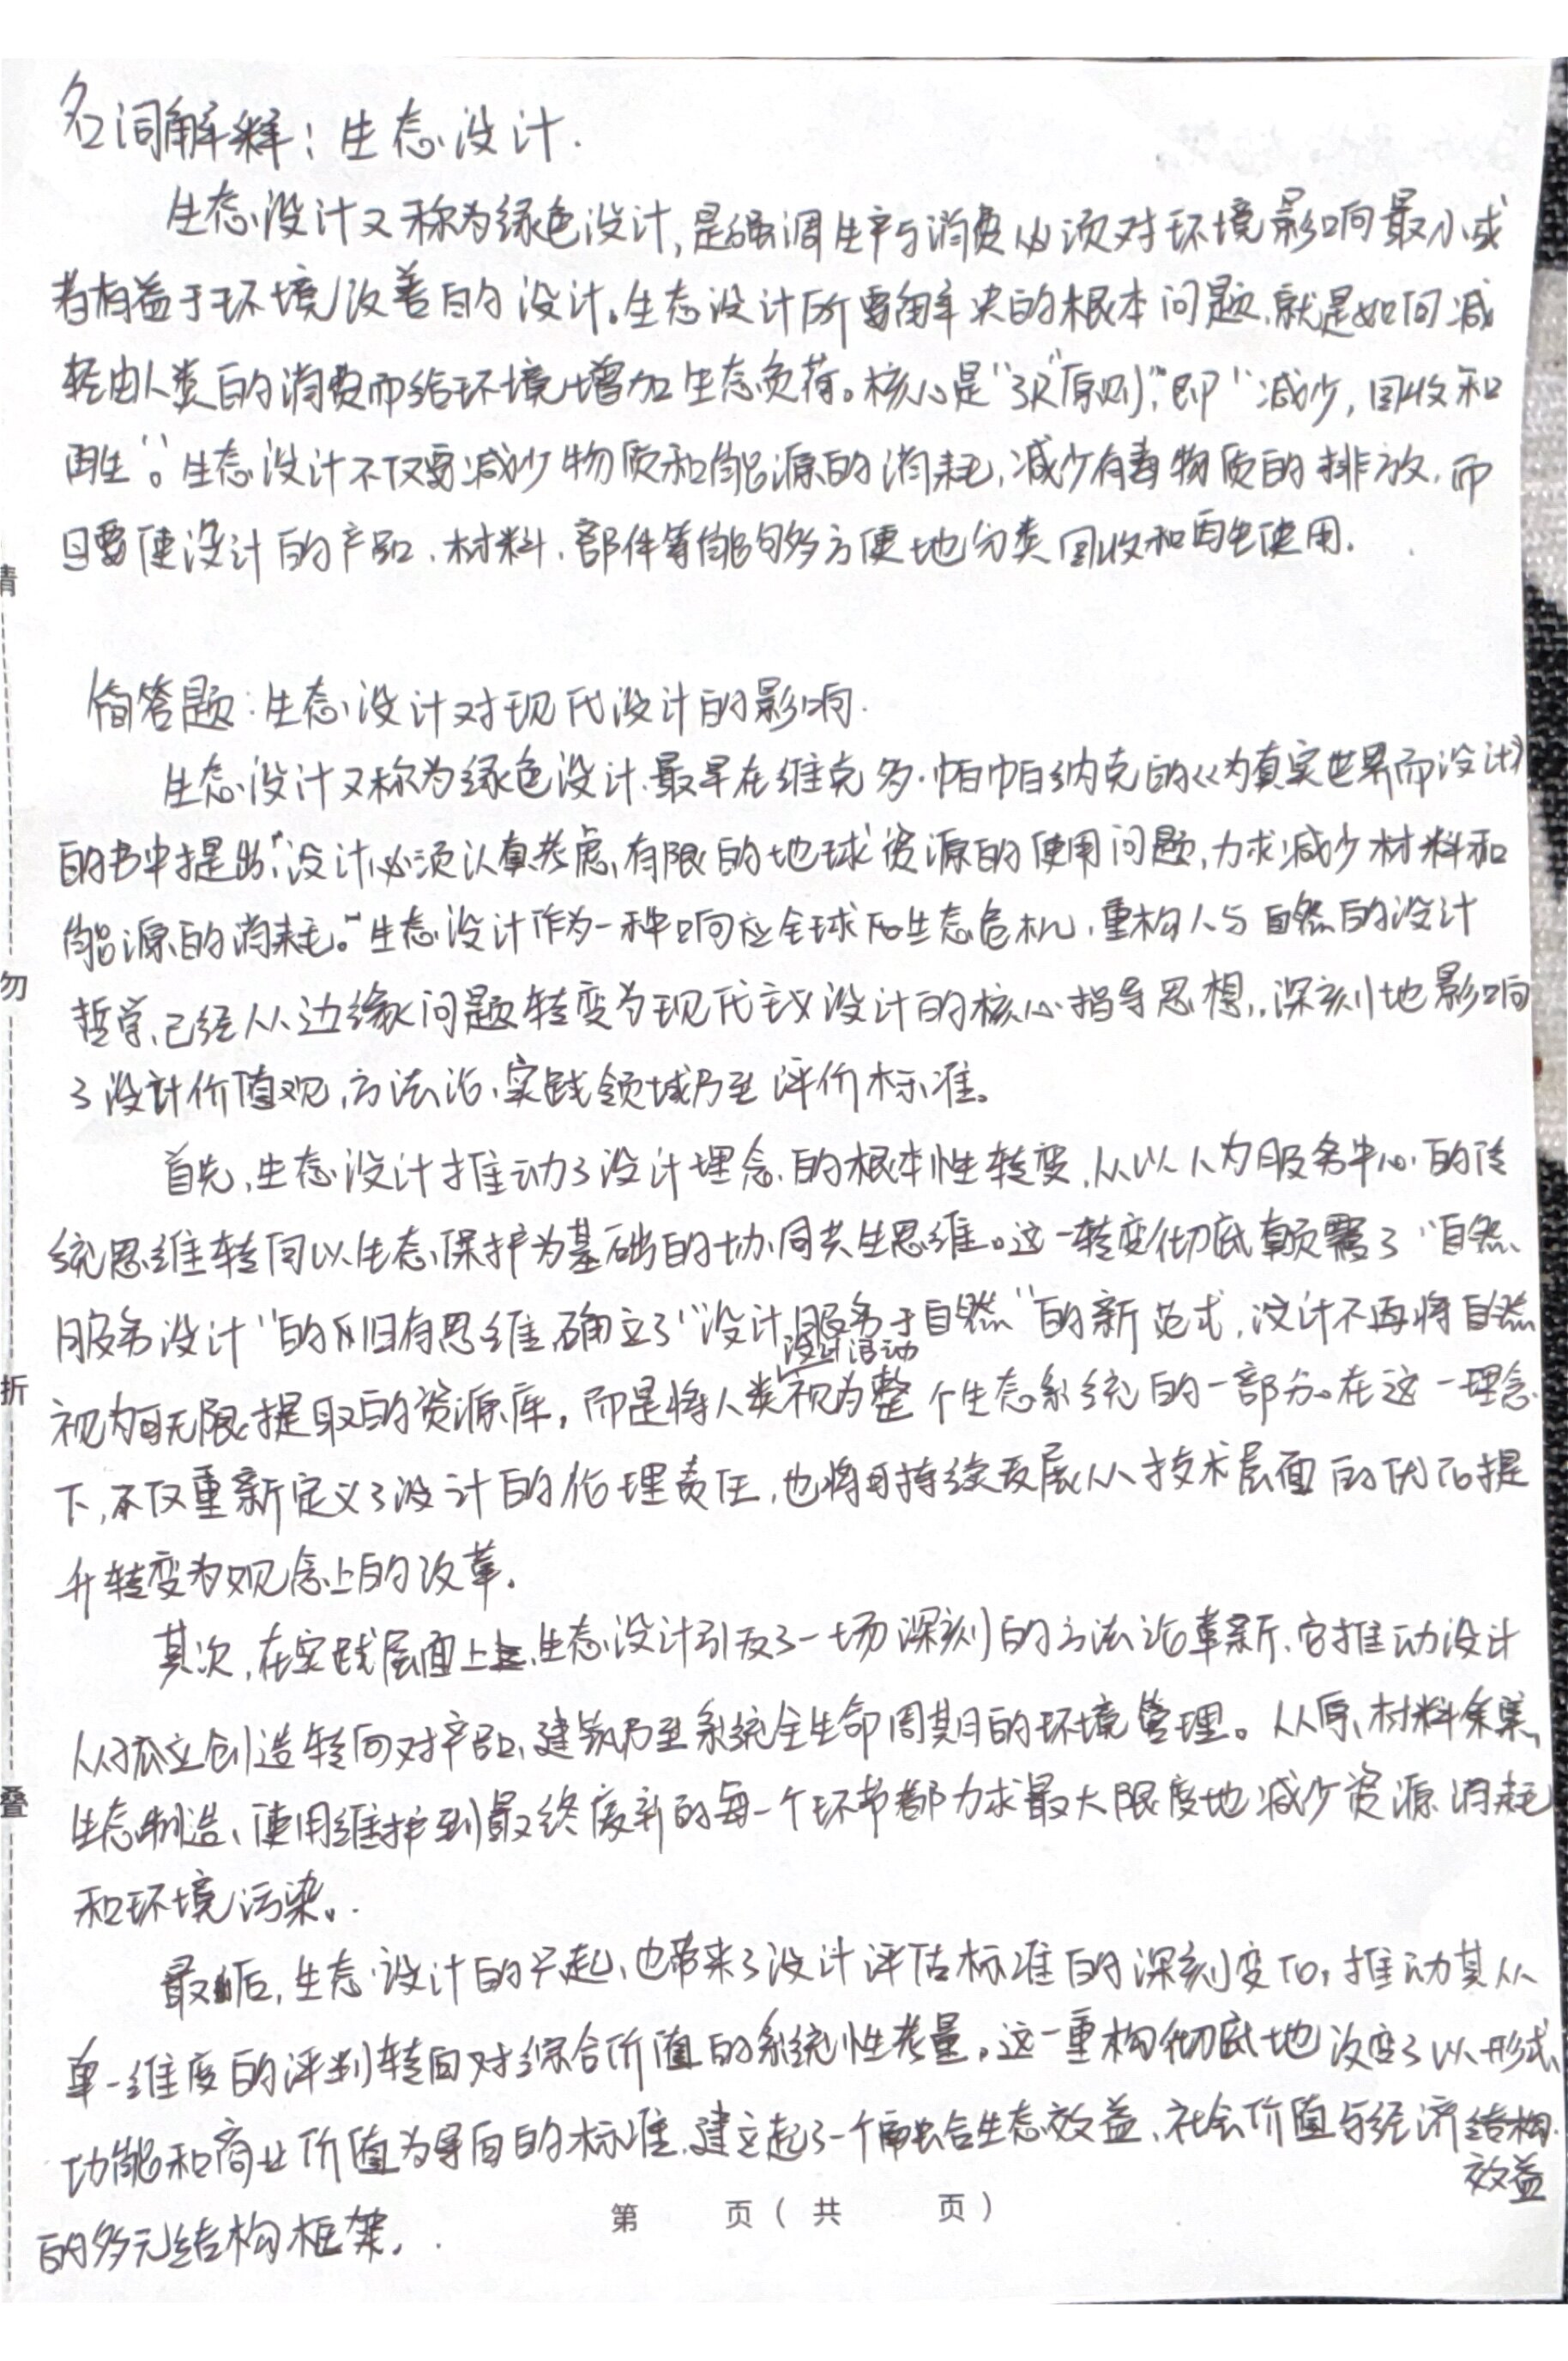 名词解释：生态设计.
生态设计又称为绿色设计，是强调生产与消费必须对环境影响最小或
者有益于环境改善的设计。生态设计所要解决的根本问题，就是如何减
轻由人类的消费而给环境增加生态负荷。核心是“3R”原则”，即“减少，回收和
再生”。生态设计不仅要减少物质和能源的消耗，减少有毒物质的排放，而
且要使设计的产品、材料、部件等能够多方便地分类回收和再生使用.
简答题：生态设计对现代设计的影响.
生态设计又称为绿色设计.最早在维克多·帕帕纳克的《为真实世界而设计》
的书中提出，“设计必须认真考虑，有限的地球资源的使用问题，力求减少材料和
能源的消耗。”生态设计作为一种响应全球化生态危机，重构人与自然的设计
哲学、已经从边缘问题转变为现代主义设计的核心指导思想，深刻地影响
了设计价值观、方法论、实践领域乃至评价标准。
首先，生态设计推动了设计理念的根本性转变，从以人为服务中心的传
统思维转向以生态保护为基础的协同共生思维。这一转变彻底颠覆了“自然
服务设计”的旧有思维，确立了“设计服务于自然”的新范式，设计不再将自然
设计活动
视为可无限提取的资源库，而是将人类视为整个生态系统的一部分。在这一理念
下，不仅重新定义了设计的伦理责任，也将可持续发展从技术层面的优化提
升转变为观念上的改革.
其次，在实践层面上，生态设计引发了一场深刻的方法论革新，它推动设计
从孤立创造转向对产品、建筑乃至系统全生命周期的环境管理。从原材料采集、
生态制造、使用维护到最终废弃的每一个环节都力求最大限度地减少资源消耗
和环境污染。
最后，生态设计的兴起，也带来了设计评估标准的深刻变化，推动其从
单一维度的评判转向对综合价值的系统性考量。这一重构彻底地改变了以形式、
功能和商业价值为导向的标准，建立起了一个融合生态效益、社会价值与经济结构
效益
的多元结构框架.
第 页（共 页）
请
勿
折
叠